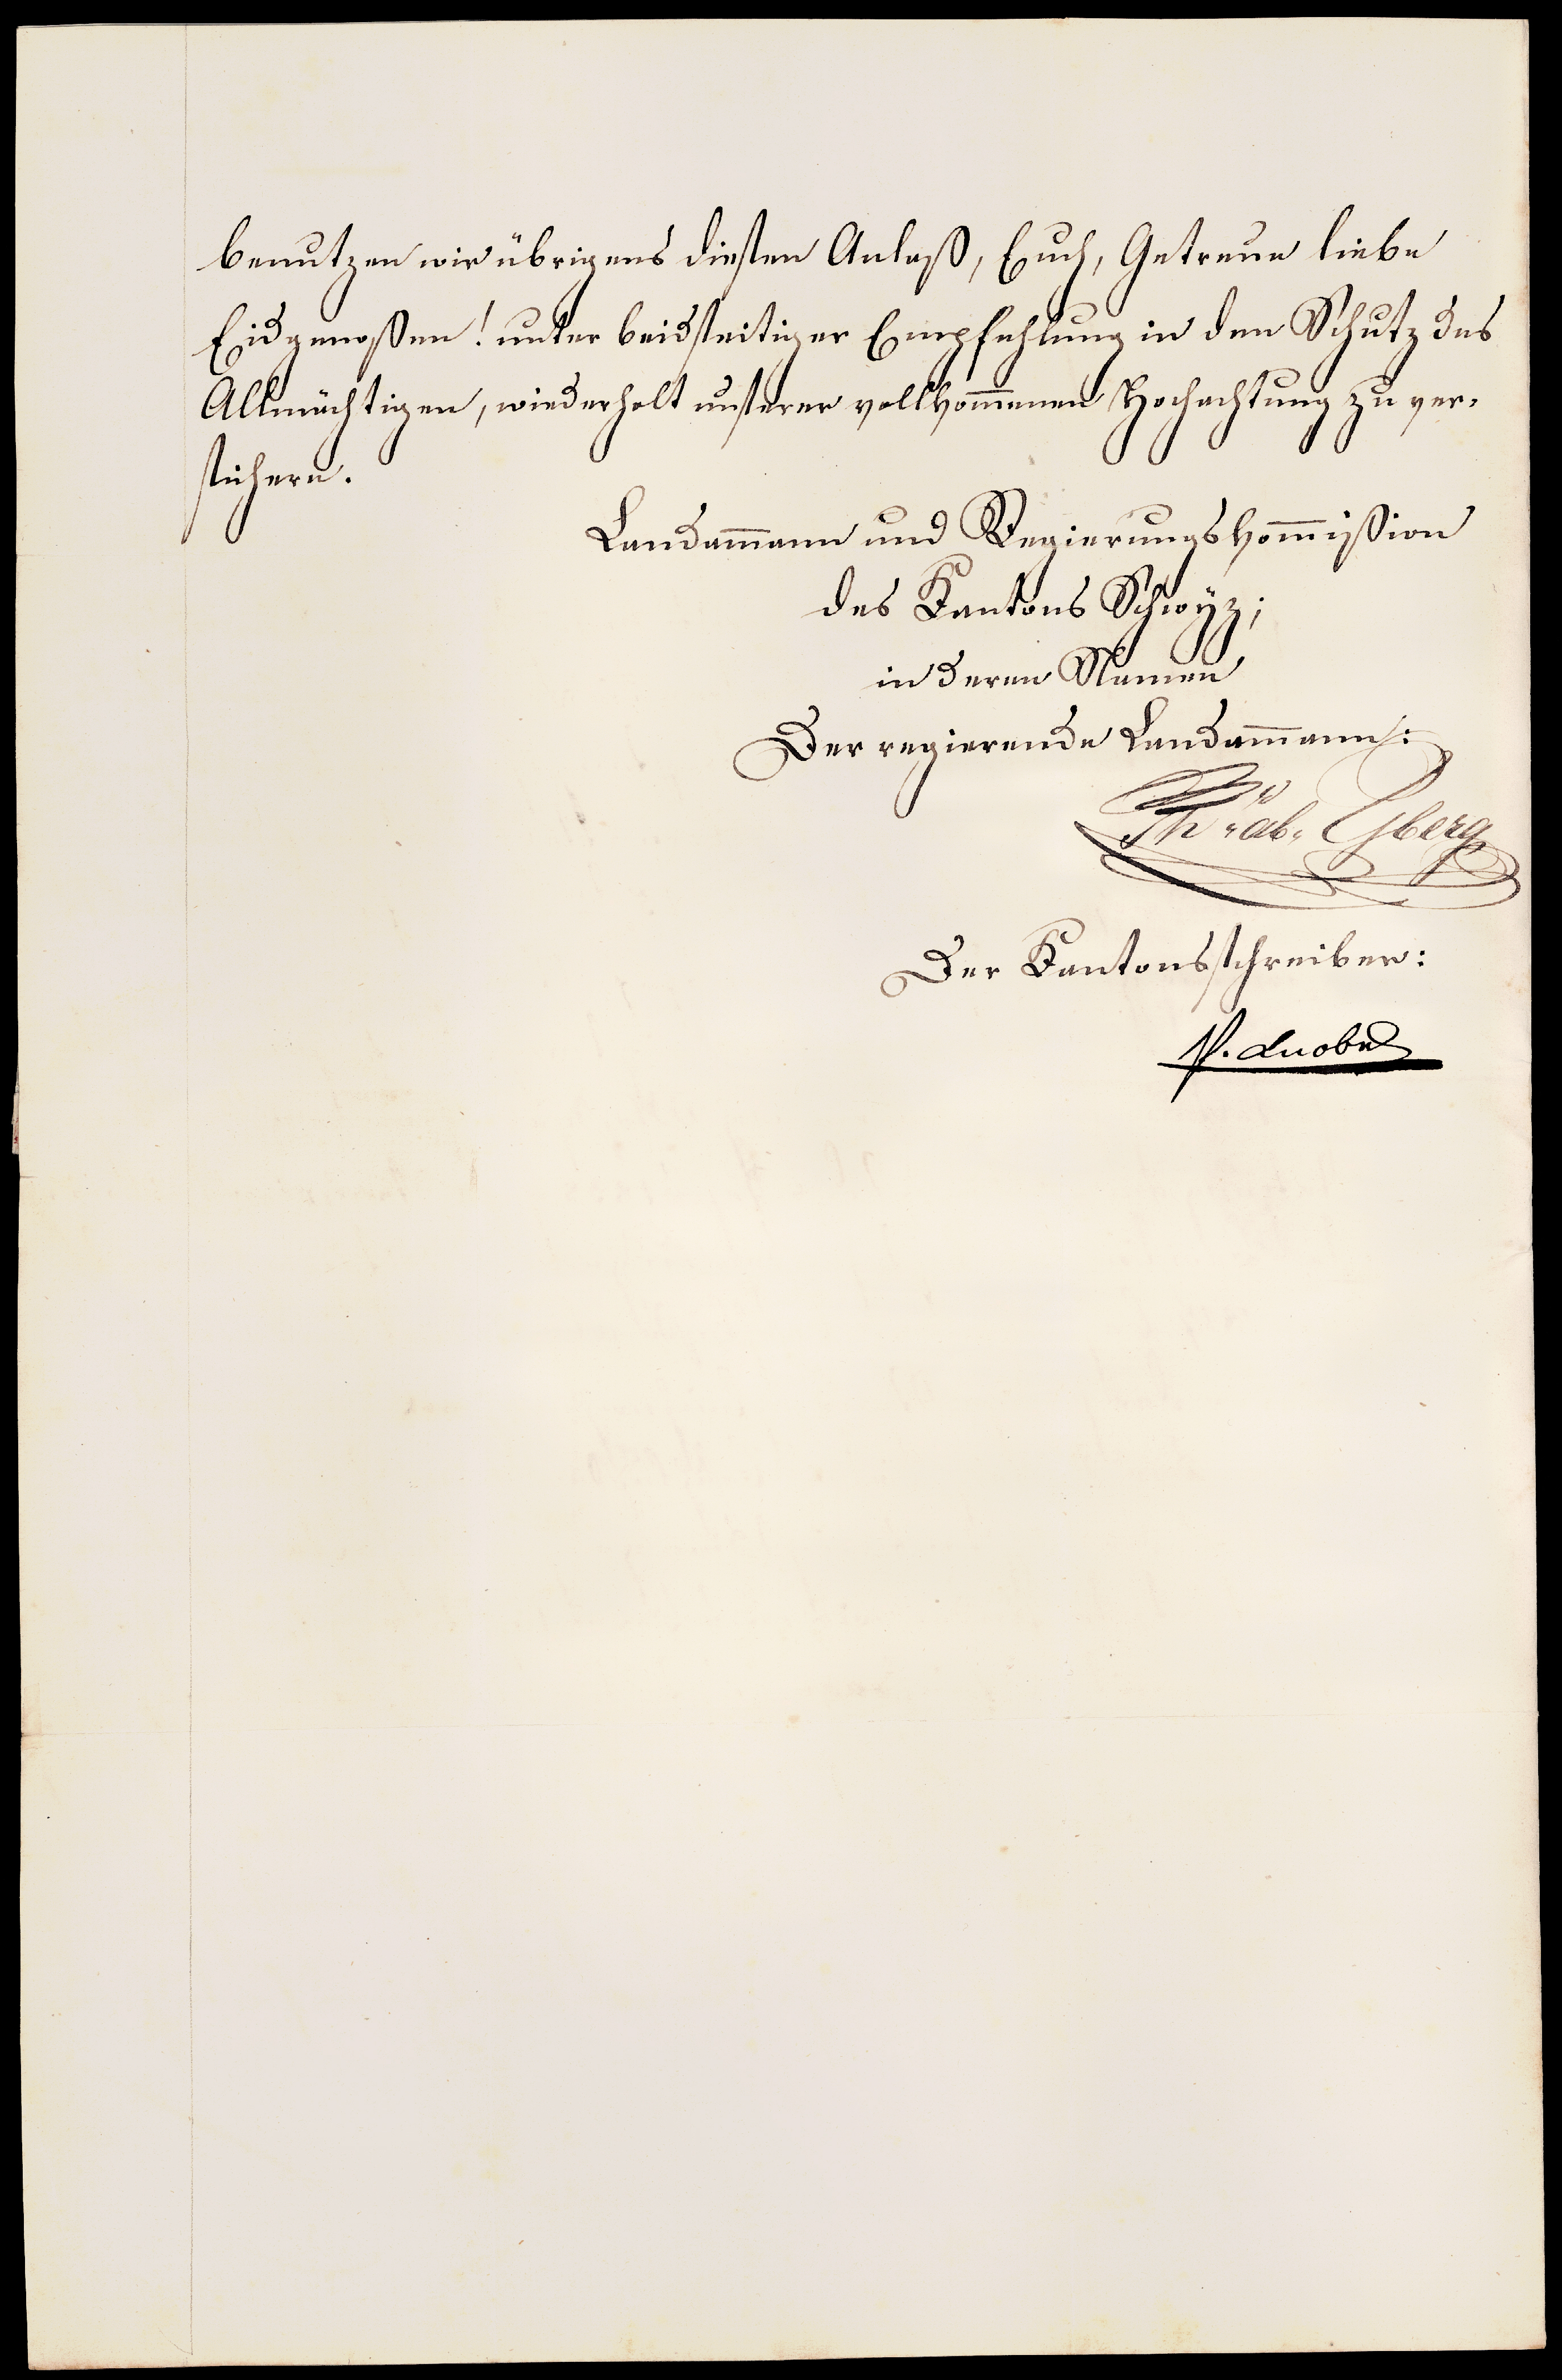 benutzen wir übrigens diesen Anlaß, Euch, Getreue liebe
Eidgenoßen! unter beidseitiger Empfehlung in den Schutz des
Allmächtigen, wiederholt unserer vollkom̅enen Hochachtung zu ver-
sichern.
Landam̅ann und Regierungskom̅ißion
des Kantons Schwÿz;
in deren Namen
Der regierende Landam̅ann:
Th. ab. Yberg
Der Kantonsschreiber: